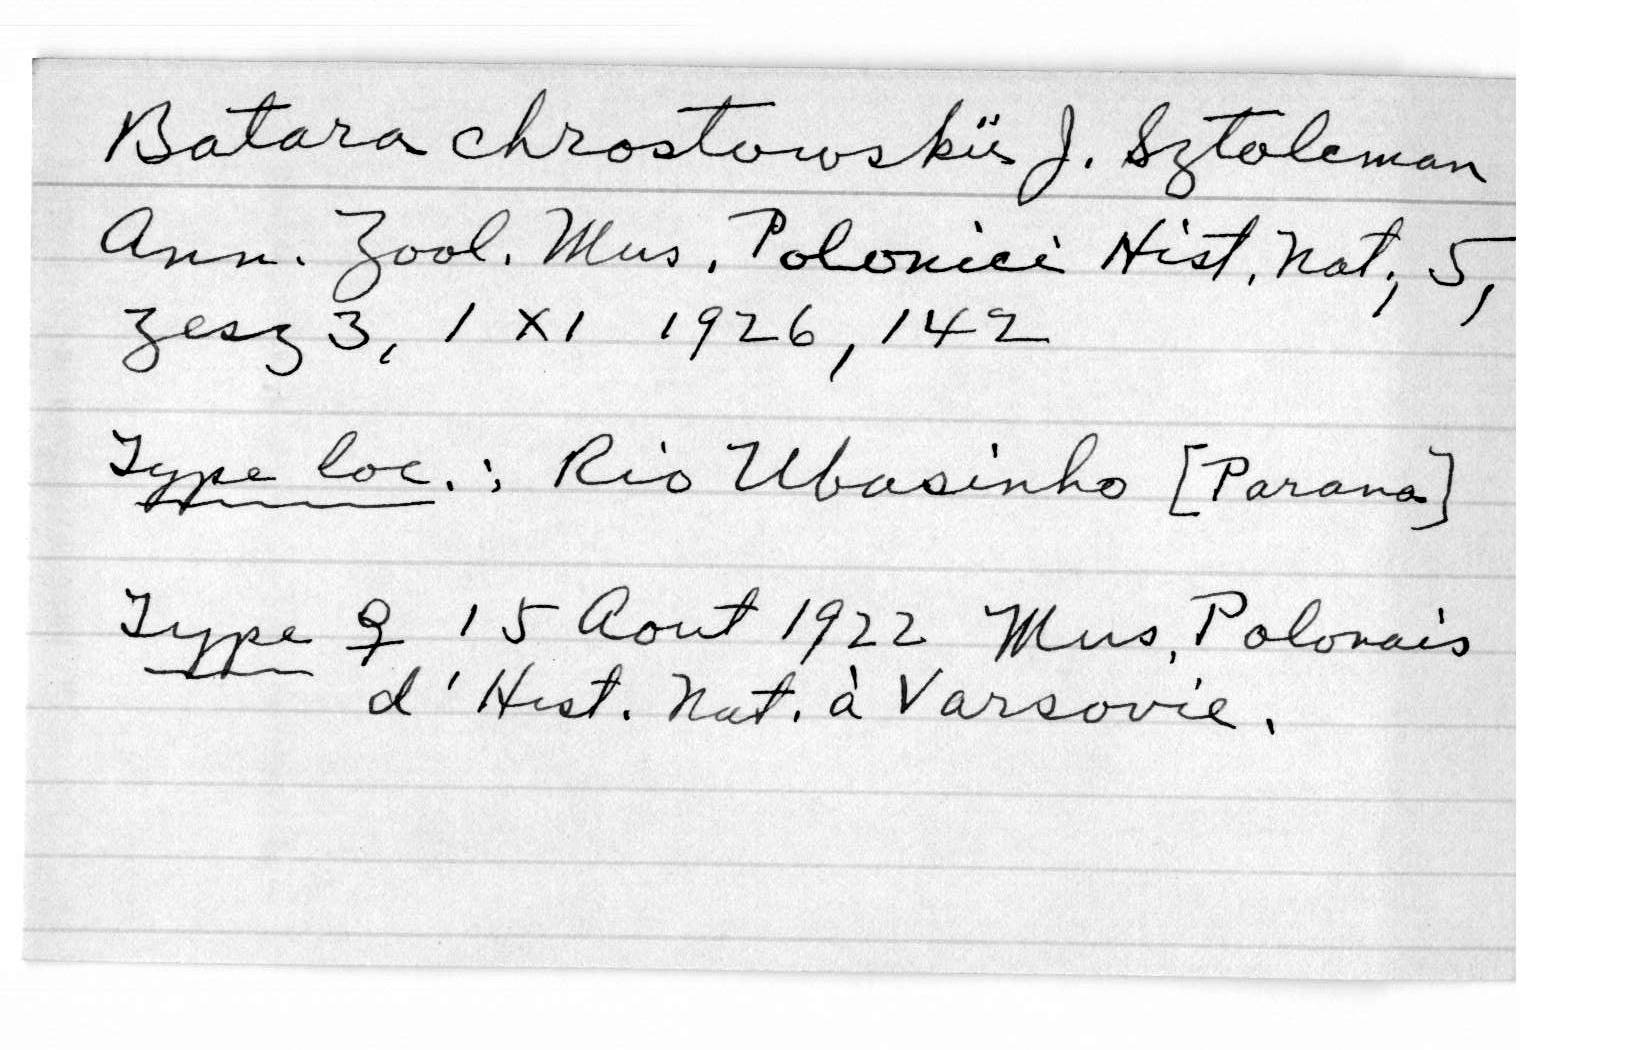 Batara chrostowskii J. Sztolcman
Ann. Zool. Mus. Polonici Hist. Nat., 5,
zesz 3, 1 XI 1926, 142
Type loc.: Rio Ubasinho [Parana]
Type ♀ 15 Aout 1922 Mus. Polonais
d'Hist. Nat. à Varsovie.